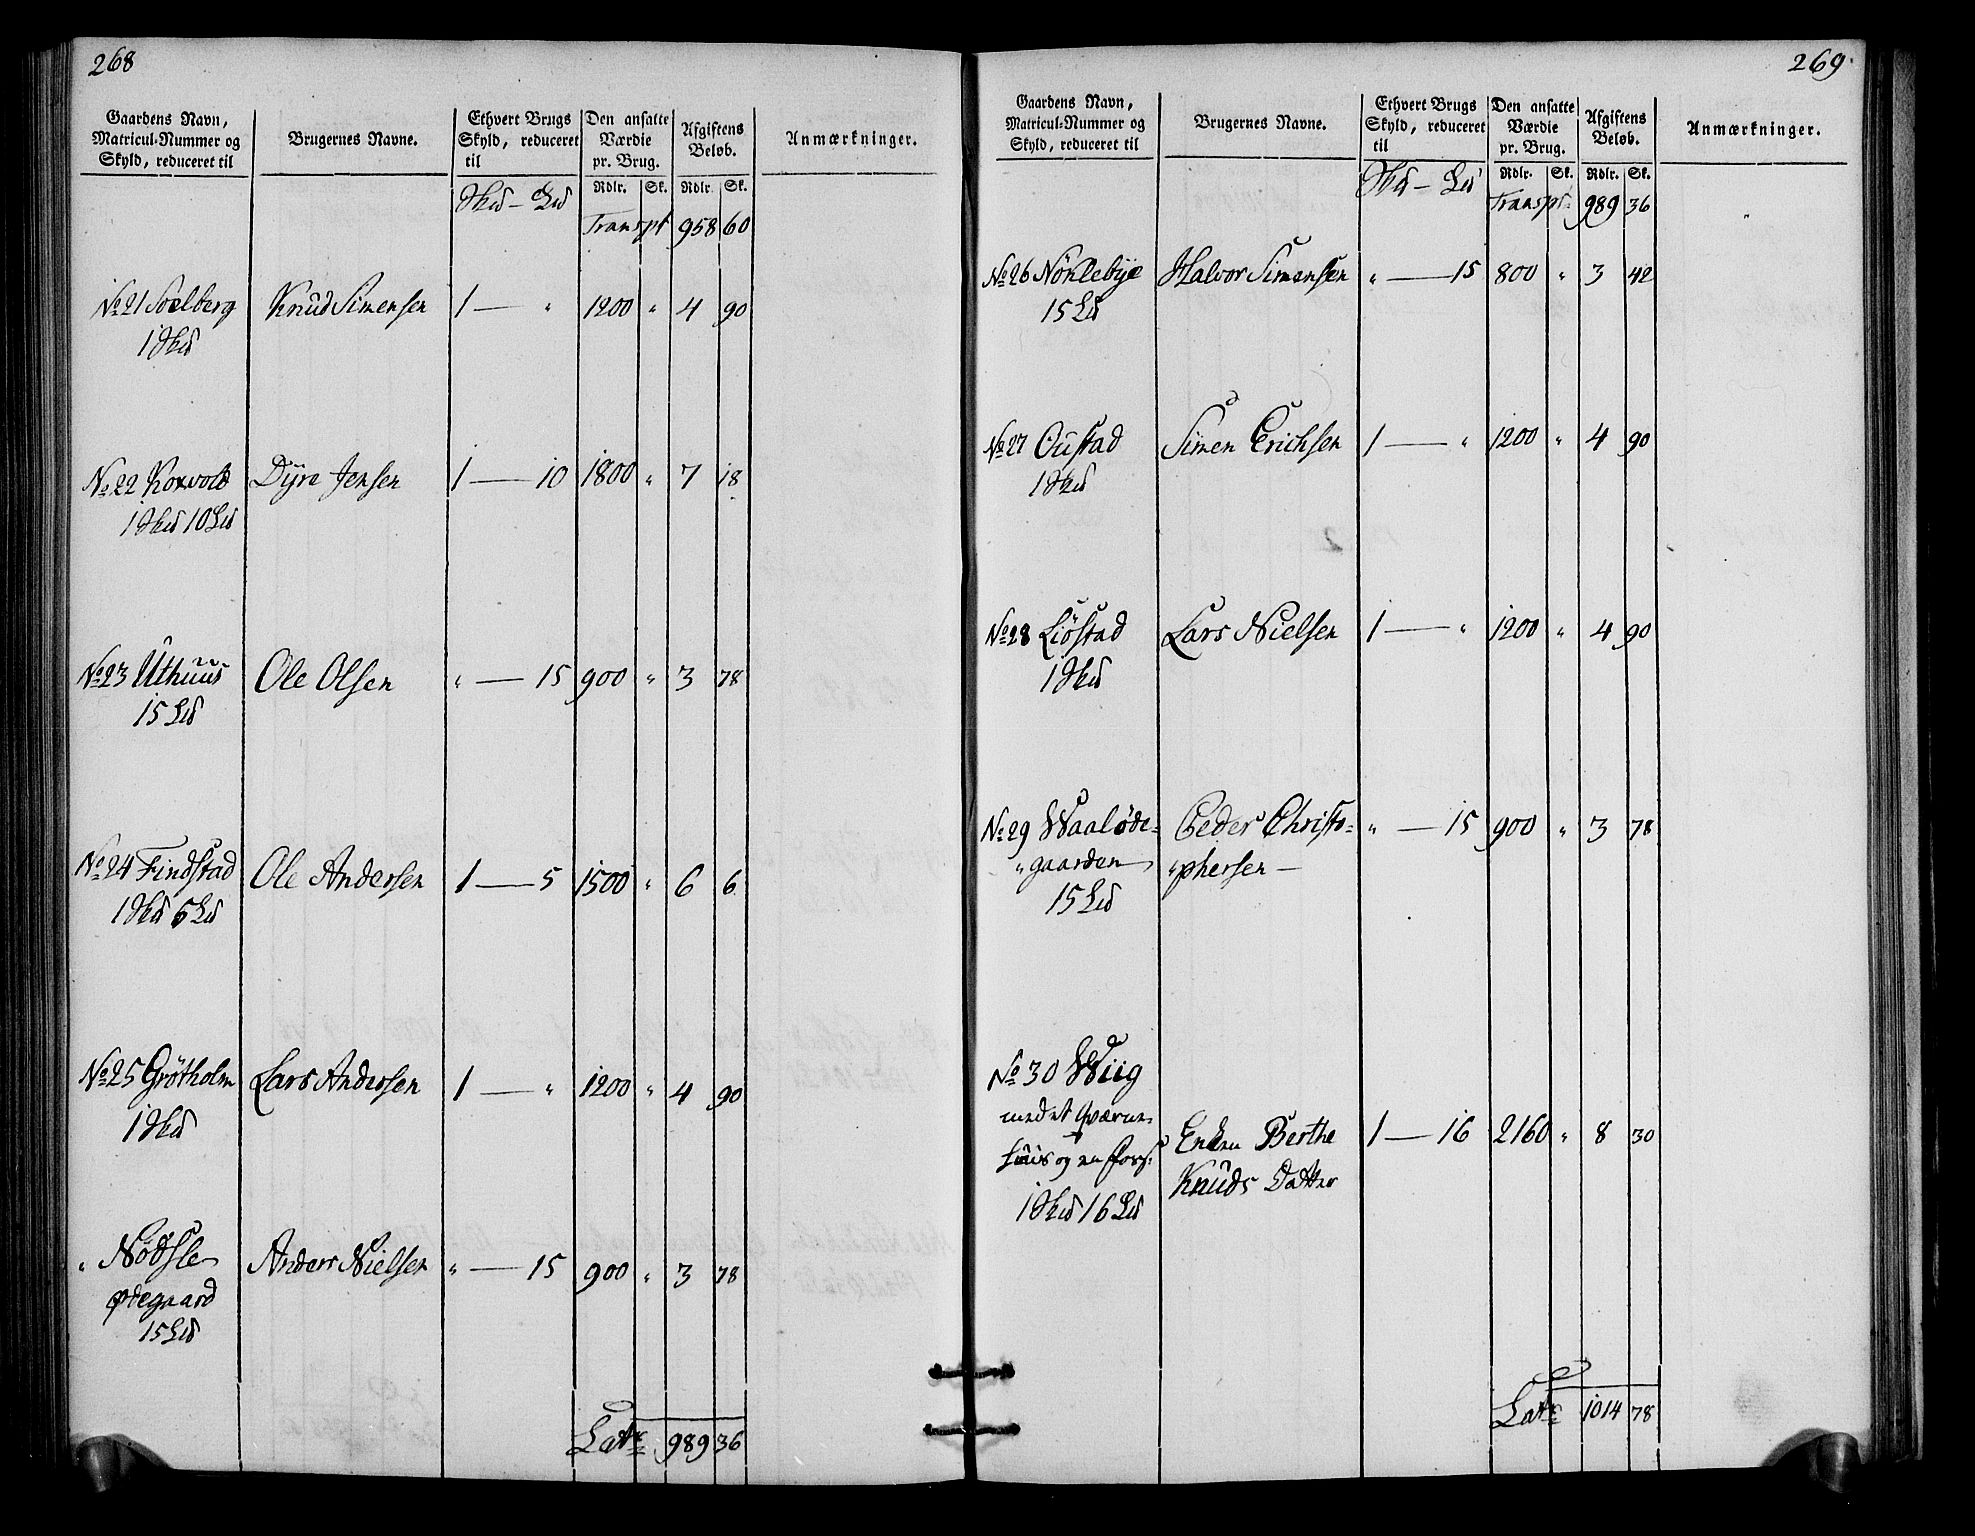 268
Gaardens Navn, Matricul-Nummer og Skyld, reduceret til | Brugernes Navne. | Ethvert Brugs Skyld, reduceret til | Den ansatte Værdie pr. Brug. | Afgiftens Beløb. | Anmærkninger.
Rdlr. | Sk. | Rdlr. | Sk.
Hud — Ld
Transpt 958 60
No 21 Soelberg Knud Simensen 1 — " 1200 " 4 90
1 Hud
No 22 Korvold Dyre Jensen 1 — 10 1800 " 7 18
1 Hud 10 Ld
No 23 Uthuus Ole Olsen " — 15 900 " 3 78
15 Ld
No 24 Findstad Ole Andersen 1 — 5 1500 " 6 6
1 Hud 5 Ld
No 25 Grøtholm Lars Andersen 1 — " 1200 " 4 90
1 Hud
" Nødsle Anders Nielsen " — 15 900 " 3 78
ødegaard
15 Ld
Latr 989 36
269
Gaardens Navn, Matricul-Nummer og Skyld, reduceret til | Brugernes Navne. | Ethvert Brugs Skyld, reduceret til | Den ansatte Værdie pr. Brug. | Afgiftens Beløb. | Anmærkninger.
Rdlr. | Sk. | Rdlr. | Sk.
Hud — Ld
Transpt 989 36
No 26 Nöklebye Halvor Simensen " — 15 800 " 3 42
15 Ld
No 27 Oustad Simen Erichsen 1 — " 1200 " 4 90
1 Hud
No 28 Liöstad Lars Nielsen 1 — " 1200 " 4 90
1 Hud
No 29 Waaløde= Peder Christo= " — 15 900 " 3 78
"gaarden "phersen —
15 Ld
No 30 Wiig
med et Qværne=
huus og en Foss: Enken Berthe 1 — 16 2160 " 8 30
1 Hud 16 Ld Knuds Datter
Latr 1014 78